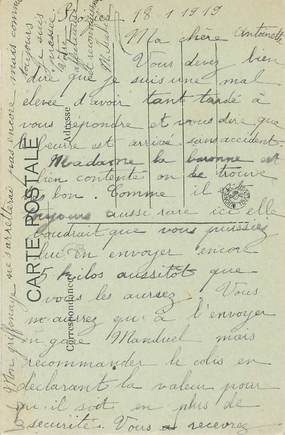 18-1-1919
Ma chère Antoinette
Vous devez bien
dire que je suis une mal
elevé d'avoir tant tardé à
vous répondre et vous dire que
beurre est arrivé sans accident.
Madame la baronne est
bien contente on le trouve
bon. Comme il
toujours aussi rare ici elle
voudrait que vous puissiez
lui en envoyer encor
5 kilos aussitôt que
vous les aursez. Vous
m'aurez qu'à l'envoyer
en gare Manduel mais
recommander le colis en
déclarant la valeur pour
qu'il soit en plus de
securité. Vous recevrez
CARTE POSTALE
Correspondance
Adresse
Mon griffonage ne s'arrêterai pas encore mais comme
toujours
je suis
pressée
Votre
reconnaissante